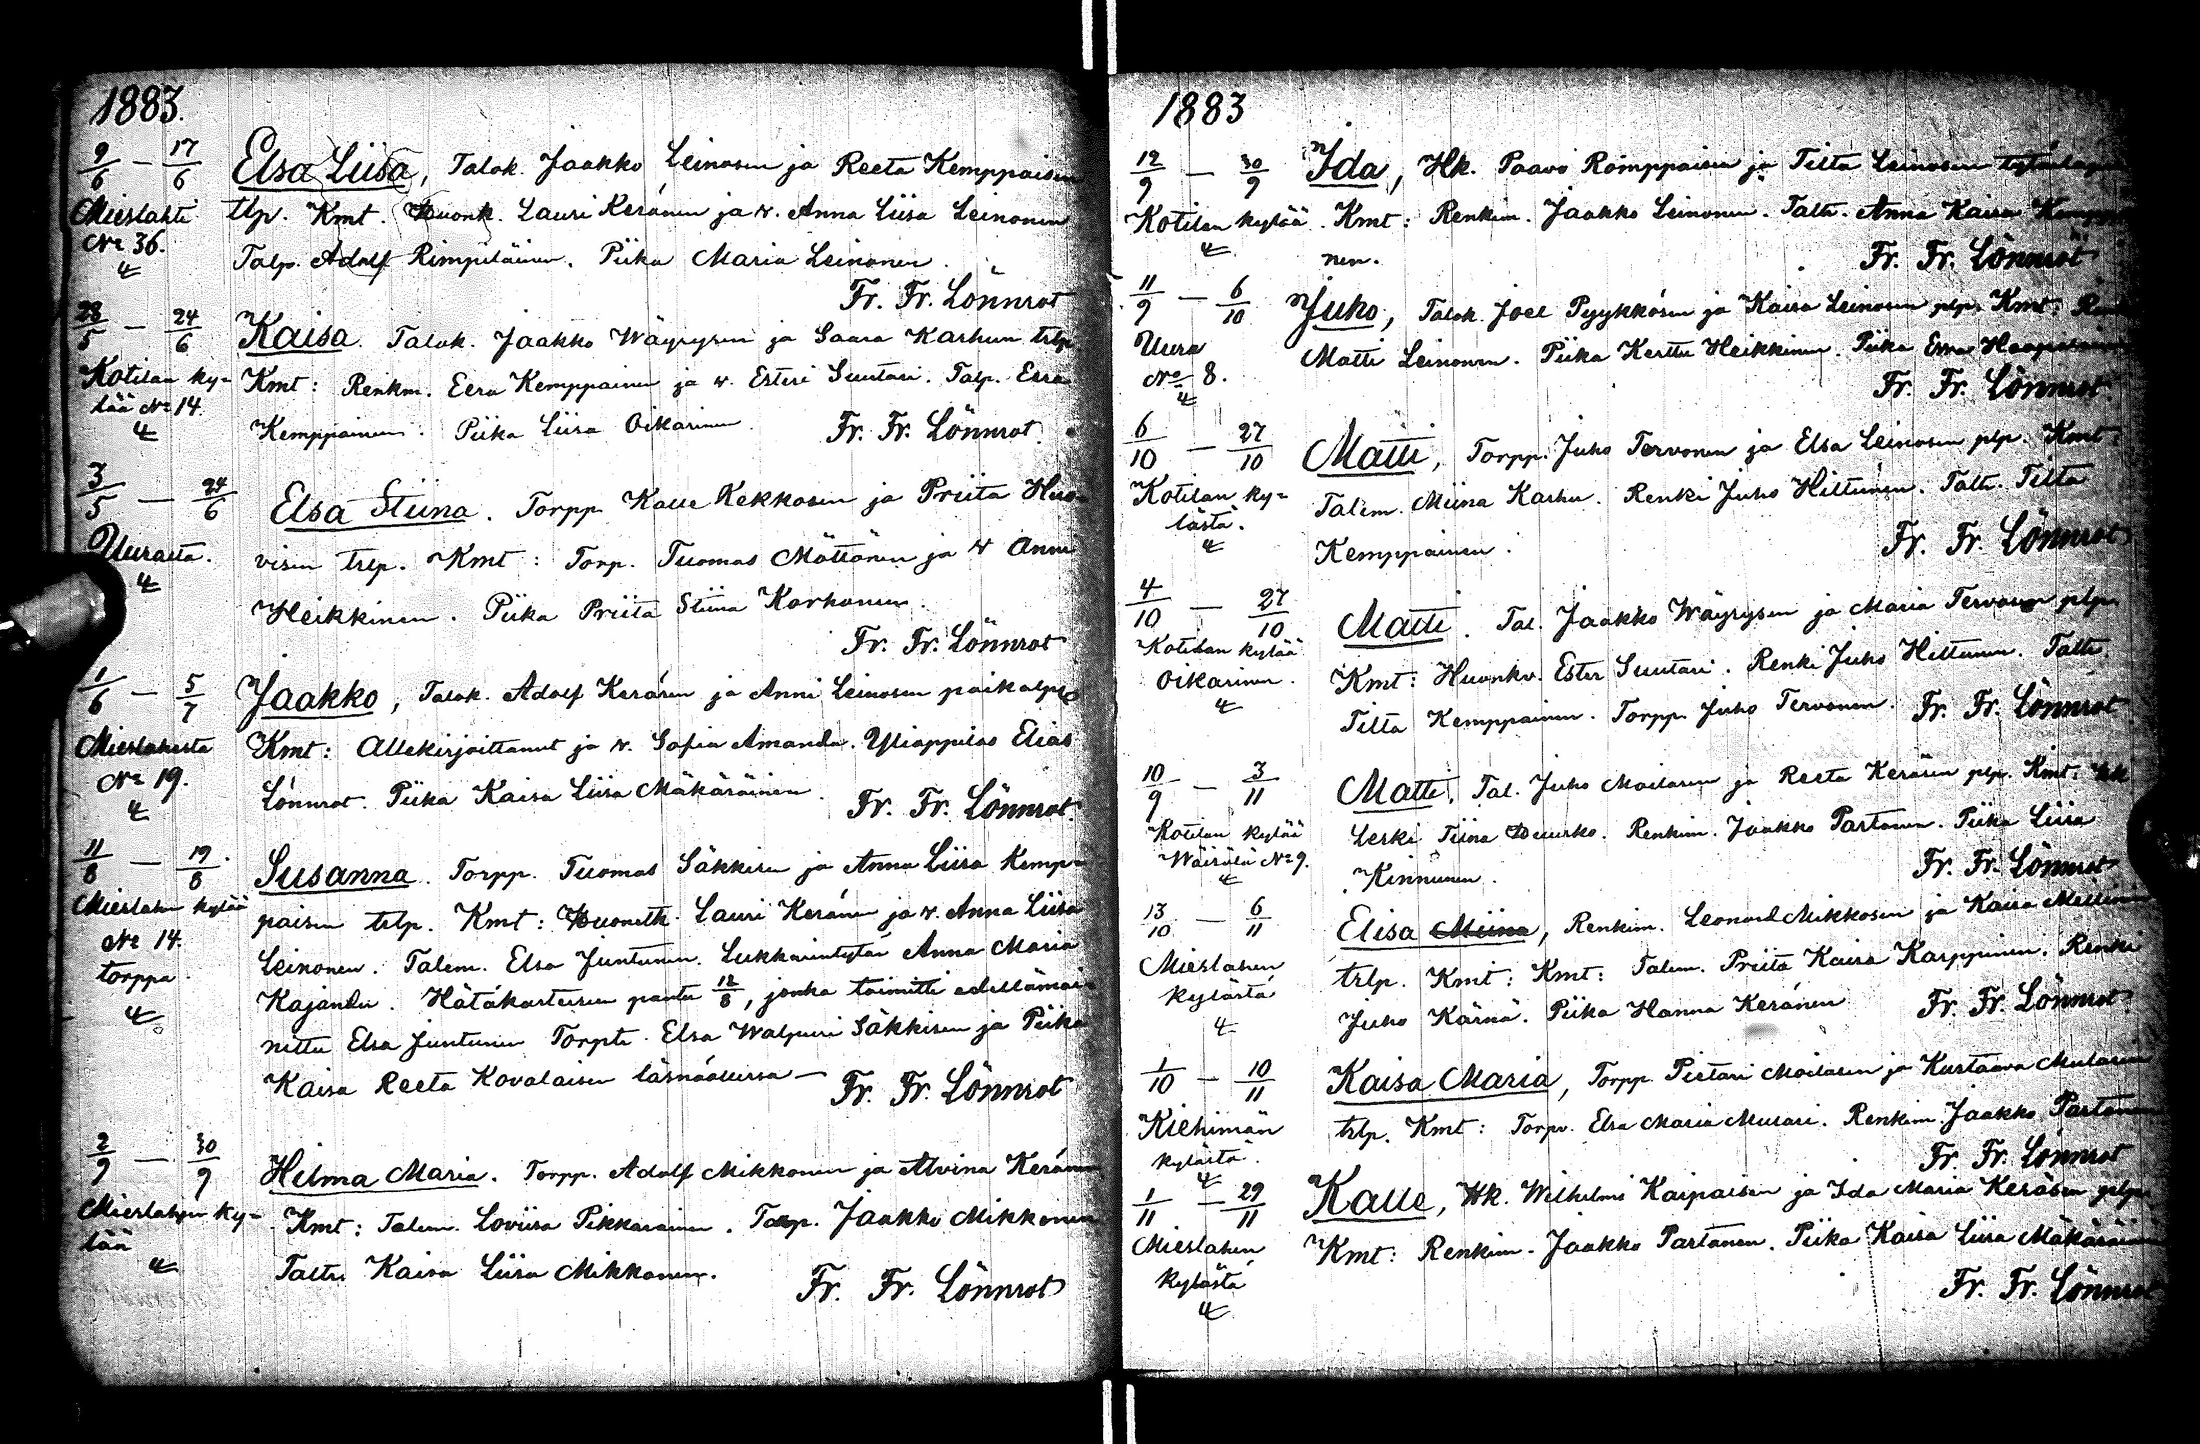 1883.
9/6 — 17/6 Elsa Liisa, Talok. Jaakko Leinosen ja Reeta Kemppaisen
Mieslahti tlp. Kmt. Huonk. Lauri Keränen ja v. Anna Liisa Leinonen
No 36. Talp. Adolf Rimpiläinen. Piika Maria Leinonen.
4
Fr. Fr. Lönnrot
28/5 — 24/6 Kaisa. Talok. Jaakko Wäyrysen ja Saara Karhun trlp
Kotilan ky= Kmt: Renkm. Eera Kemppainen ja v. Esteri Suutari. Talp. Eera
lää No 14. Kemppainen. Piika Liisa Oikarinen Fr. Fr. Lönnrot.
4
3/5 — 24/6 Elsa Stiina. Torpp. Kalle Kekkosen ja Priita Huo=
Uuraita. visen trlp. Kmt: Torp. Tuomas Möttönen ja v Anni
4 Heikkinen. Piika Priita Stiina Korhonen.
Fr. Fr. Lönnrot
1/6 — 5/7 Jaakko, Talok. Adolf Keräsen ja Anni Leinosen poikalps
Mieslahesta Kmt: Allekirjoittanut ja v. Sofia Amanda. Ylioppilas Elias
No 19. Lönnrot. Piika Kaisa Liisa Mäkäräinen. Fr. Fr. Lönnrot.
4
11/8 — 19/8 Susanna. Torpp. Tuomas Säkkisen ja Anna Liisa Kemp=
Mieslahen kylää paisen trlp. Kmt: Huoneth. Lauri Keränen ja v. Anna Liisa
No 14. Leinonen. Talem. Elsa Juntunen. Lukkarintytär Anna Maria
torppa. Kajander. Hätäkasteesen pantu 12/8, jonka toimitti edellämai=
4 nittu Elsa Juntunen Torpte. Elsa Walpuri Säkkisen ja Piika
Kaisa Reeta Kovalaisen läsnäollessa — Fr. Fr. Lönnrot
2/9 — 30/9 Helma Maria. Torpp. Adolf Mikkonen ja Alvina Keränen
Mieslahen ky= Kmt: Talem. Loviisa Pikkarainen. Talp. Jaakko Mikkonen
lää Taltr. Kaisa Liisa Mikkonen.
4
Fr. Fr. Lönnrot
1883
12/9 — 30/9 Ida, Hk. Paavo Romppaisen ja Tilta Leinosen
Kotilan kylää. Kmt: Renkim. Jaakko Leinonen. Taltr. Anna Kaisa Kemppai
4 nen. Fr. Fr. Lönnrot
11/9 — 6/10 Juho, Talok. Joel Pyykkösen ja Kaisa Leinosen plp. Kmt:
Uura Matti Leinonen. Piika Kerttu Heikkinen. Piika
No 8.
4
Fr. Fr. Lönnrot.
6/10 — 27/10 Matti, Torpp. Juho Tervonen ja Elsa Leinosen plp. Kmt:
Kotilan ky= Talem. Miina Karhu. Renki Juho Hiltunen. Taltr. Tilta
lästä. Kemppainen. Fr. Fr. Lönnrot
4
4/10 — 27/10 Matti. Tal. Jaakko Wäyrysen ja Maria Tervosen plp.
Kotilan kylää Kmt: Huonkv. Ester Suutari. Renki Juho Hiltunen. Taltr.
Oikarinen. Tilta Kemppainen. Torpp. Juho Tervonen. Fr. Fr. Lönnrot
4
10/9 — 3/11 Matti, Tal. Juho Moilasen ja Reeta Keräsen plp. Kmt:
Kotilan kylää Leski Tiina Renkim. Jaakko Partanen. Piika Liisa
Wäisälä No 9. Kinnunen. Fr. Fr. Lönnrot
4
13/10 — 6/11 Elisa Miina, Renkim. Leonard Mikkosen ja Kaisa
Mieslahen trlp. Kmt: Kmt: Talem. Priita Kaisa Karppinen. Renki
kylästä Juho Kärnä. Piika Hanna Keränen Fr. Fr. Lönnrot
4
1/10 — 10/11 Kaisa Maria, Torpp. Pietari Moilasen ja Kustaava Mularin
Kiehimän trlp. Kmt: Torpv. Elsa Maria Mulari. Renkim. Jaakko Partanen
kylästä.
4
Fr. Fr. Lönnrot
1/11 — 29/11 Kalle, Hk. Wilhelmi Kaipaisen ja Ida Maria Keräsen plp.
Mieslahen Kmt: Renkim. Jaakko Partanen. Piika Kaisa Liisa Mäkäräinen
kylästä
4
Fr. Fr. Lönnrot